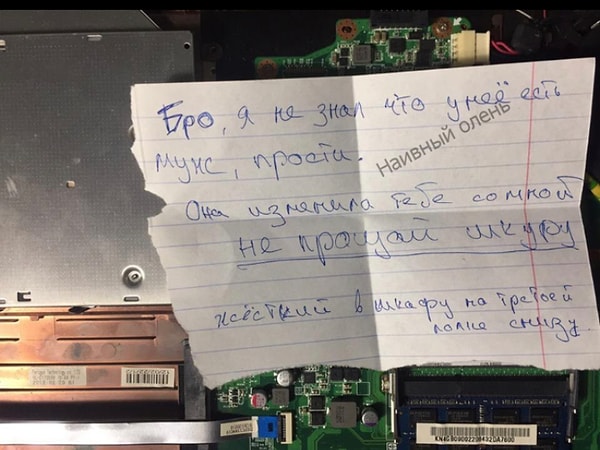 Бро, я не знал что у неё есть
муж, прости.
Наивный олень
Она изменила тебе со мной
не прощай шкуру
жёсткий в шкафу на третьей
полке снизу.
KN4GB0G0022084J2DA7600